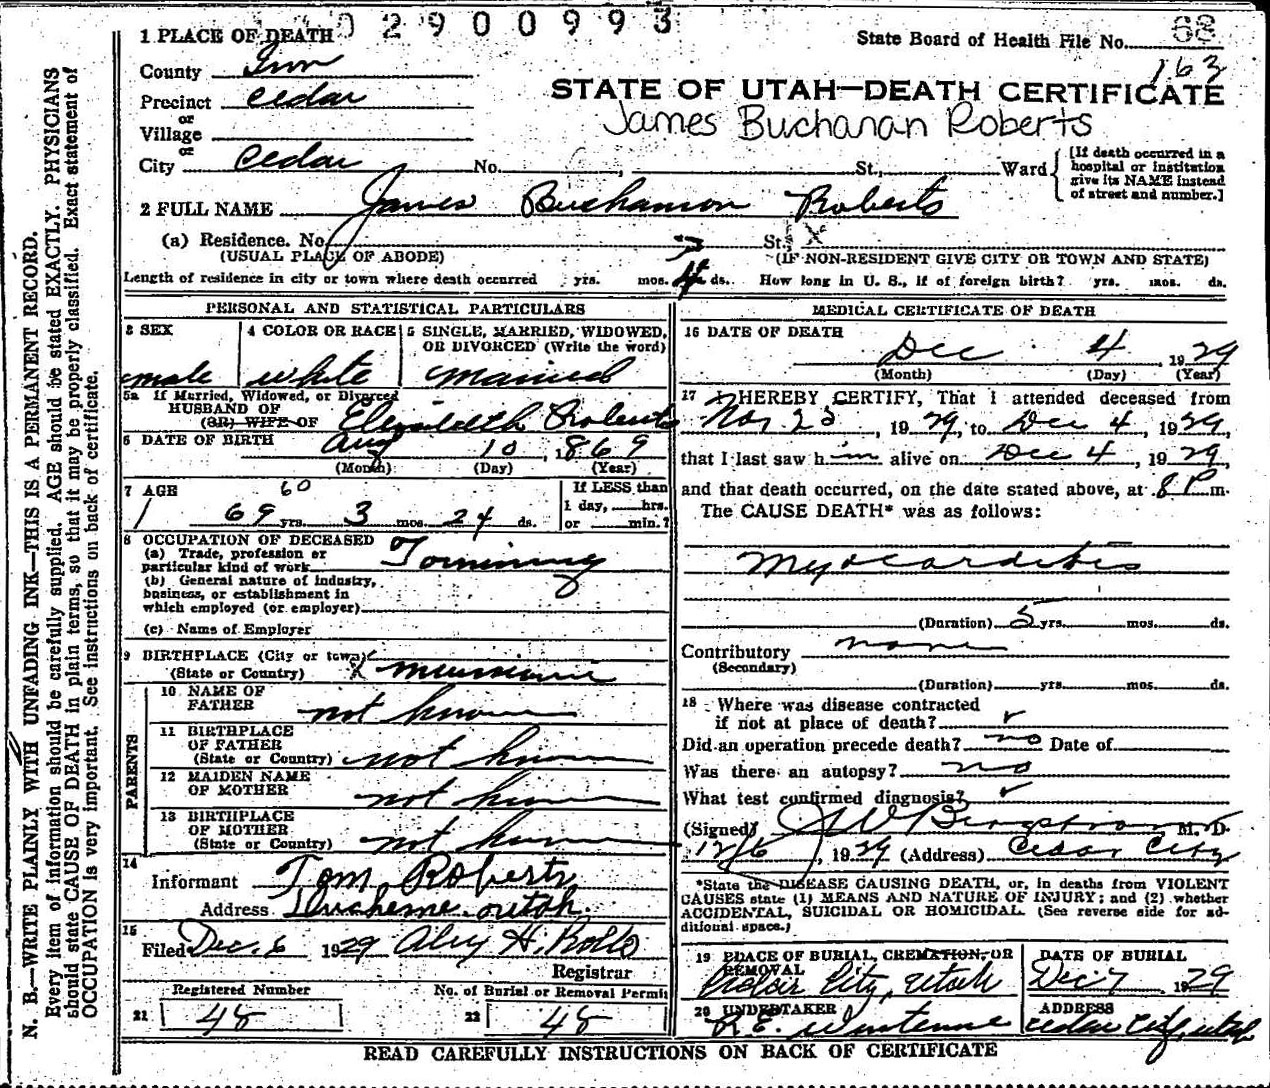 02900993
1 PLACE OF DEATH
State Board of Health File No. 68
163
County Iron
STATE OF UTAH—DEATH CERTIFICATE
Precinct Cedar
James Buchanan Roberts
or
Village
or
City Cedar No. St., Ward
[If death occurred in a hospital or institution give its NAME instead of street and number.]
2 FULL NAME James Buchanan Roberts
(a) Residence. No. St. X
(USUAL PLACE OF ABODE) (IF NON-RESIDENT GIVE CITY OR TOWN AND STATE)
Length of residence in city or town where death occurred yrs. mos. 4 ds. How long in U. S., if of foreign birth? yrs. mos. ds.
PERSONAL AND STATISTICAL PARTICULARS
3 SEX
male
4 COLOR OR RACE
white
5 SINGLE, MARRIED, WIDOWED, OR DIVORCED (Write the word)
married
5a If Married, Widowed, or Divorced
HUSBAND OF
(OR) WIFE OF Elizabeth Roberts
6 DATE OF BIRTH Aug 10, 1869
(Month) (Day) (Year)
7 AGE 60
69 yrs. 3 mos. 24 ds.
If LESS than
1 day, hrs.
or min.?
8 OCCUPATION OF DECEASED
(a) Trade, profession or
particular kind of work
(b) General nature of industry,
business, or establishment in
which employed (or employer)
(c) Name of Employer
9 BIRTHPLACE (City or town)
(State or Country) X
PARENTS
10 NAME OF FATHER not known
11 BIRTHPLACE OF FATHER (State or Country) not known
12 MAIDEN NAME OF MOTHER not known
13 BIRTHPLACE OF MOTHER (State or Country) not known
14
Informant Tom Roberts
Address Duchesne Utah
15
Filed Dec. 6 1929
Registrar
Registered Number
No. of Burial or Removal Permit
21 48
22 48
MEDICAL CERTIFICATE OF DEATH
16 DATE OF DEATH
Dec 4, 1929
(Month) (Day) (Year)
17 I HEREBY CERTIFY, That I attended deceased from
Nov 23, 1929, to Dec 4, 1929,
that I last saw him alive on Dec 4, 1929,
and that death occurred, on the date stated above, at 8 P m.
The CAUSE DEATH* was as follows:
Myocarditis
(Duration) 5 yrs. mos. ds.
Contributory none
(Secondary)
(Duration) yrs. mos. ds.
18 Where was disease contracted
if not at place of death?
Did an operation precede death? no Date of
Was there an autopsy? no
What test confirmed diagnosis?
(Signed) M. D.
12/6, 1929 (Address) Cedar City
*State the DISEASE CAUSING DEATH, or, in deaths from VIOLENT
CAUSES state (1) MEANS AND NATURE OF INJURY; and (2) whether
ACCIDENTAL, SUICIDAL OR HOMICIDAL. (See reverse side for ad-
ditional space.)
19 PLACE OF BURIAL, CREMATION, OR REMOVAL
Cedar City, Utah
DATE OF BURIAL
Dec 7 1929
20 UNDERTAKER
ADDRESS
Cedar City, Utah
READ CAREFULLY INSTRUCTIONS ON BACK OF CERTIFICATE
N. B.—WRITE PLAINLY WITH UNFADING INK—THIS IS A PERMANENT RECORD.
Every item of information should be carefully supplied. AGE should be stated EXACTLY. PHYSICIANS
should state CAUSE OF DEATH in plain terms, so that it may be properly classified. Exact statement of
OCCUPATION is very important. See instructions on back of certificate.